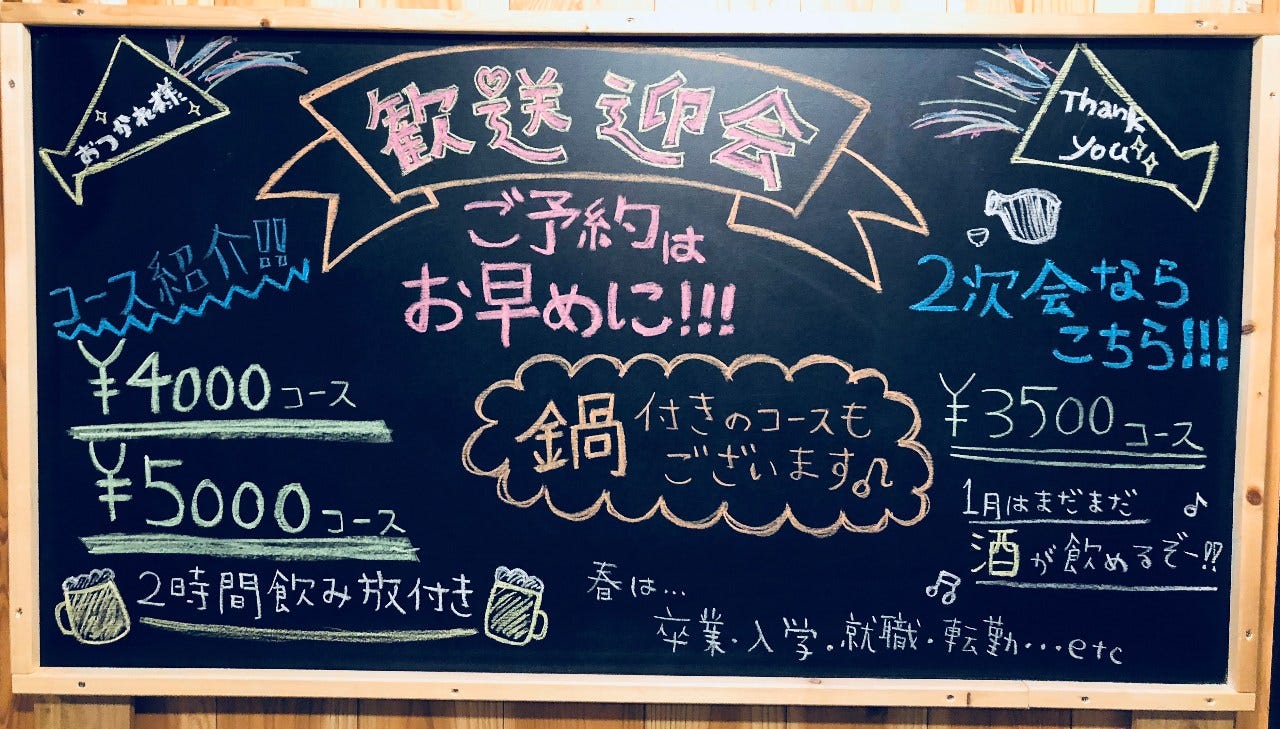 おつかれ様
歓送迎会
Thank
you
ご予約は
お早めに!!!
コース紹介!!
¥4000コース
¥5000コース
2時間飲み放付き
鍋付きのコースも
ございます♫
2次会なら
こちら!!!
¥3500コース
1月はまだまだ♪
酒が飲めるぞー!!
春は...
卒業・入学・就職・転勤・・・etc